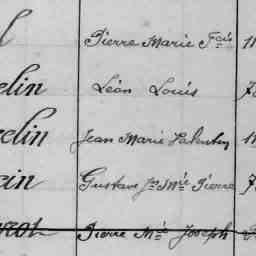 l Pierre Marie Fois
elin Léon Louis 7
elin Jean Marie Valentin
ein Gustave Jn Mie Pierre 7
Pierre Mie Joseph